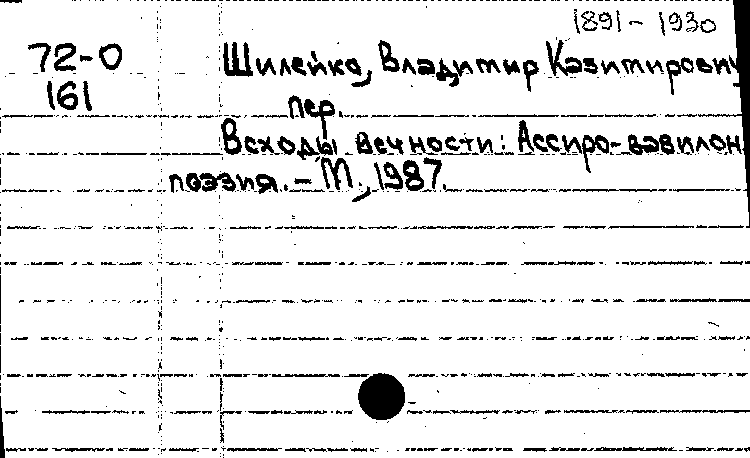 1891-1930
72-0 Шилейко, Владимир Казимирович
161 пер.
Всходы вечности: Ассиро-вавилон.
поэзия. - М., 1987.